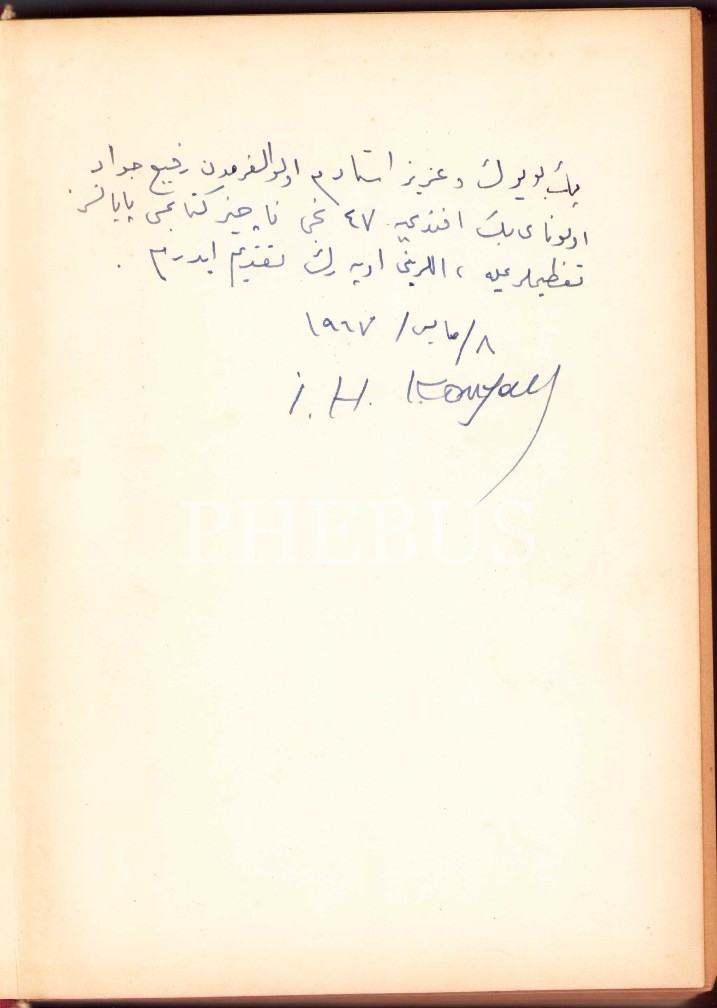 پك بويوك و عزيز استادم اولوالغرمدن رفيع جواد
اولوناى بك افندى يه ٤٧ نجى ناچيز كتابمى پايانسز
تعظيملرميله ، اللرينى اوپه رك تقديم ايدرم .
٨/مايس/ ١٩٦٧
i. H. Konyalı
PHEBUS